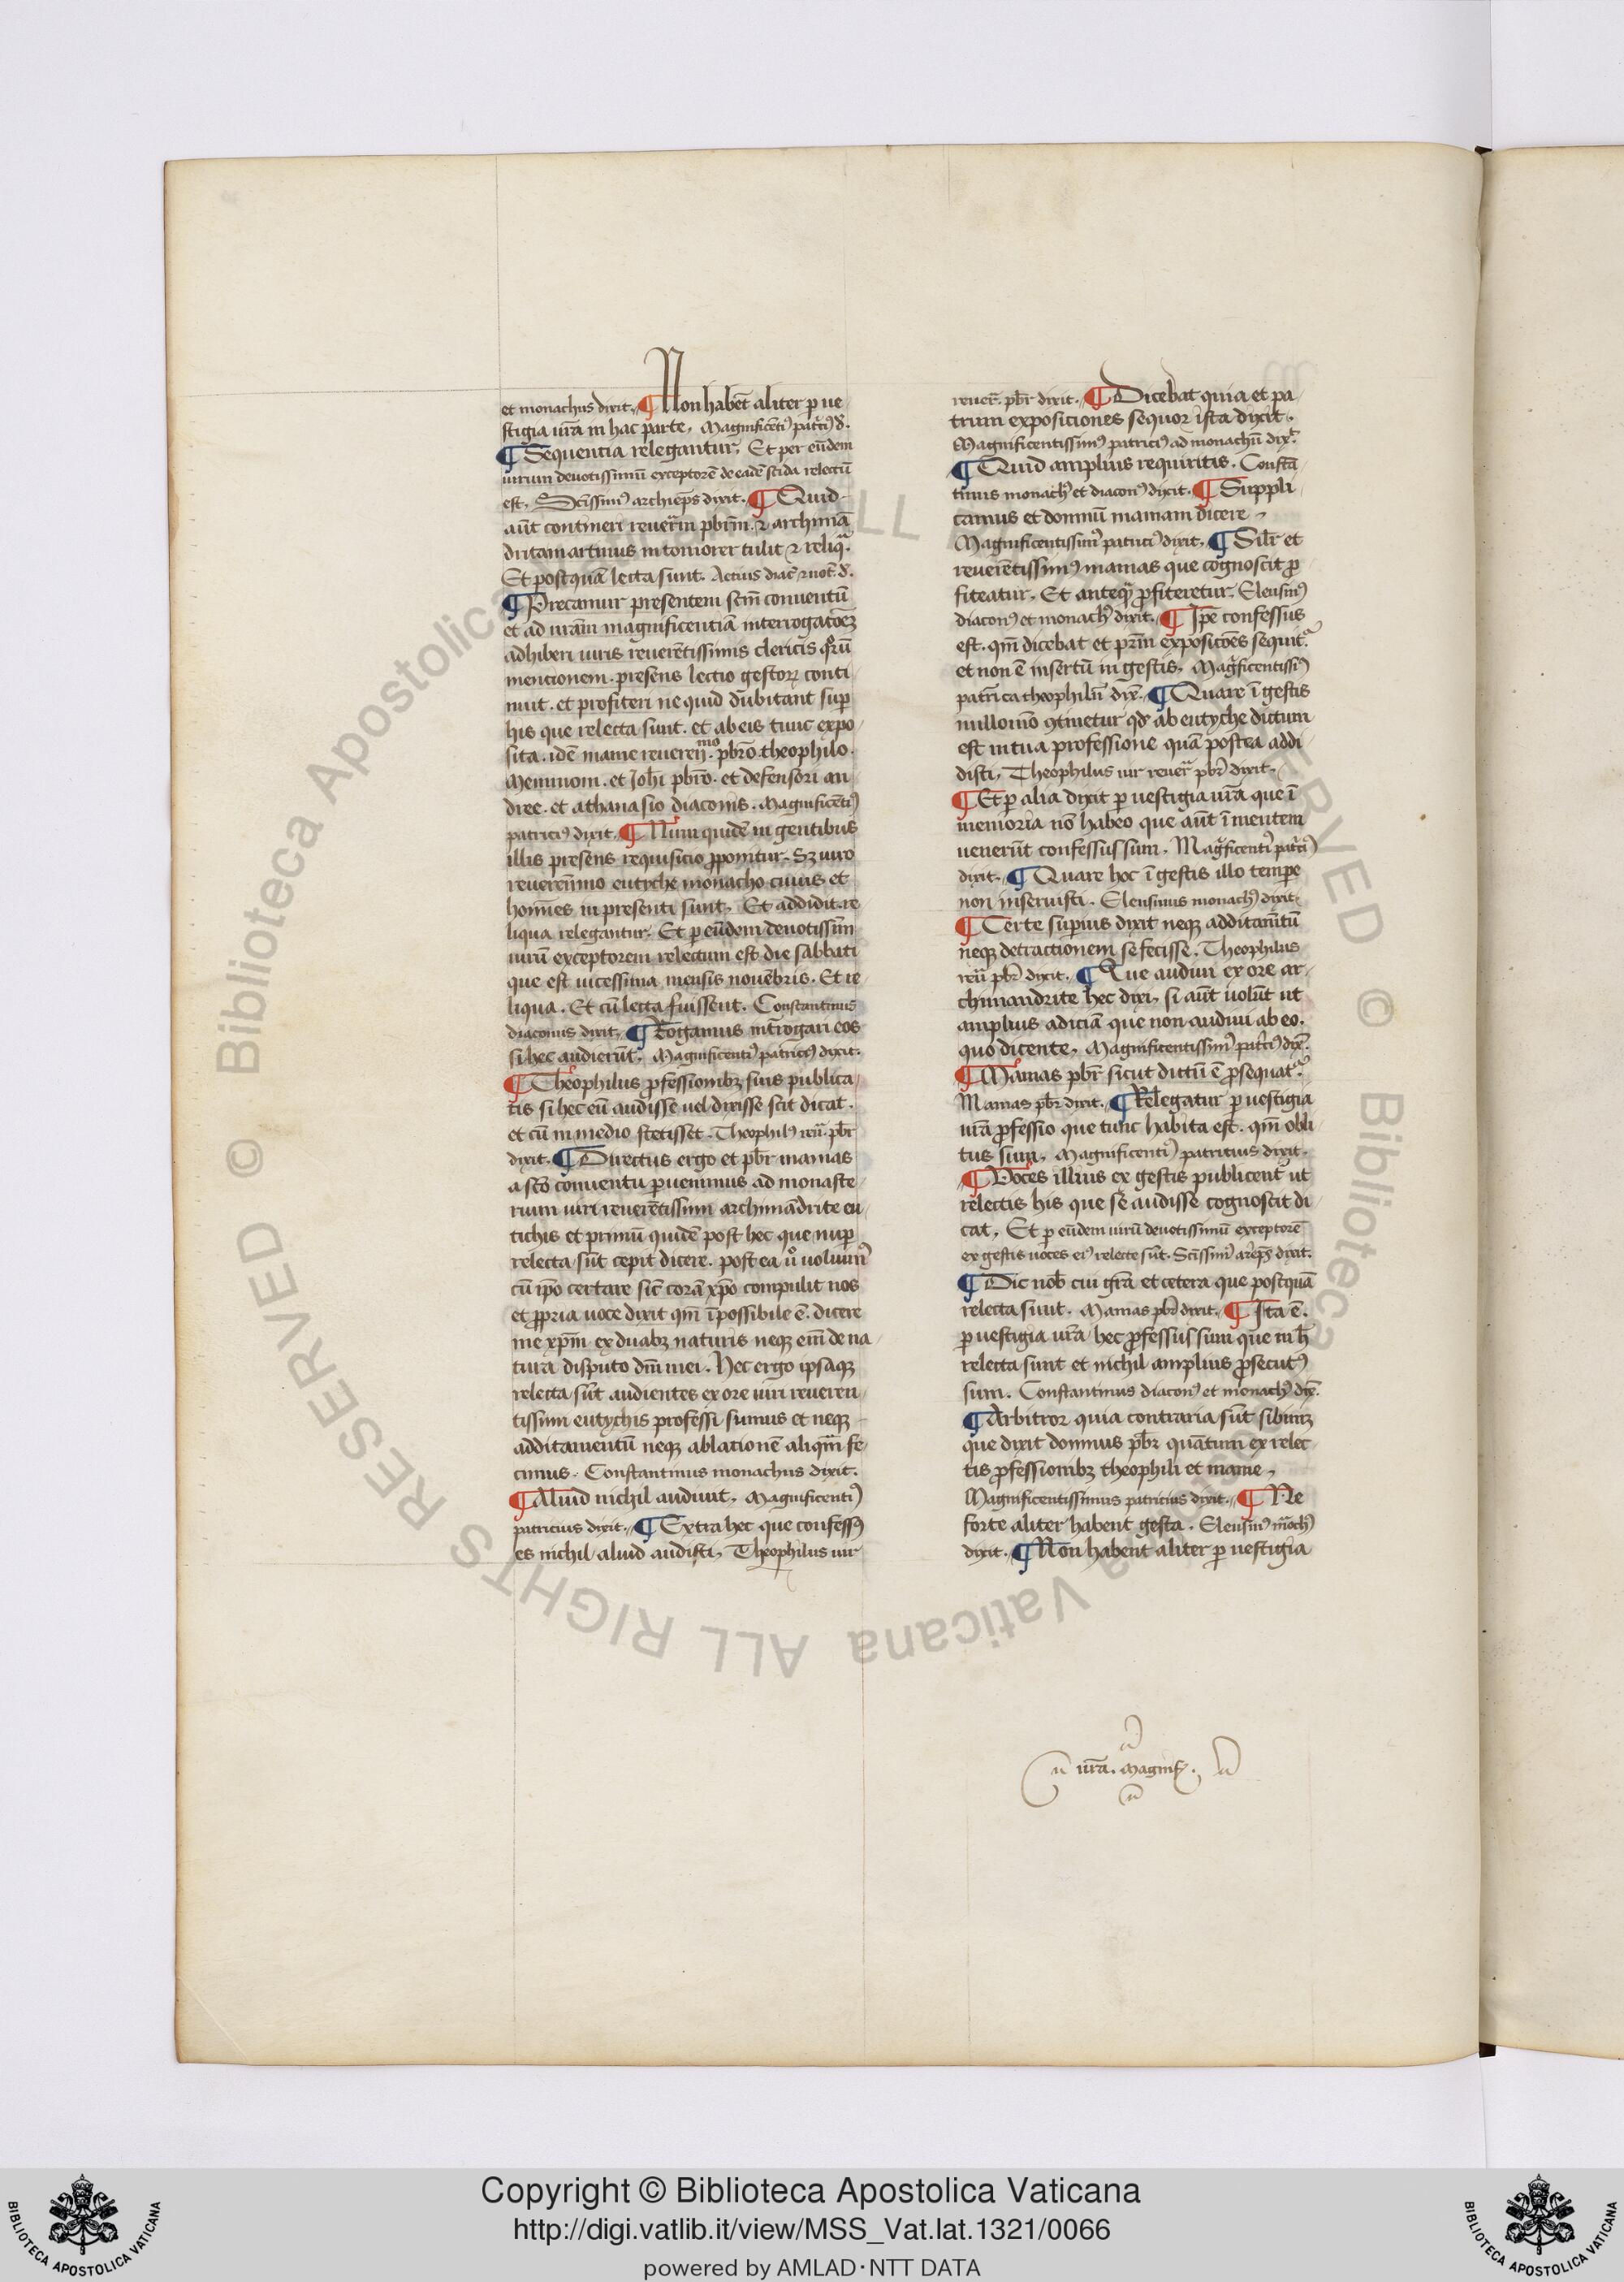 et monachus dixit. ¶ Non habēt aliter ꝑ ue
stigia ur̄a in hac parte. Magnificēti᷒ patⁱci᷒ d̄.
¶ Sequentia relegantur. Et per eūdem
uirum deuotissimū exceptorē de eadē scida relectū
est. Sc̄issim᷒ archiep̄s dixit. ¶ Quid
aūt contineri reuer̄m p̄brm̄ ⁊ archimā
dritam
tulit ⁊ reliq̄.
Et postquā lecta sunt. Aetius diac̄ ⁊ not̄ d̄.
¶ Precamur presentem sc̄m conuentū
et ad ur̄am magnificentiā interrogatōēꝫ
adhiberi uiris reuerētissimis clericis qͦrū
mentionem presens lectio gestoꝝ conti
nuit. et profiteri ne quid dubitant suꝑ
his que relecta sunt. et ab eis tunc expo
sita. idē mame reueren̄mo p̄bro theophilo.
Memnoni. et Joh̄i p̄bro. et defensori an
dree. et athanasio diaconis. Magnificēti᷒
patrici᷒ dixit. ¶ Num quidē in gentibus
illis presens requisicio ꝓponitur. Sꝫ uiro
reueren̄mo eutyche monacho cuius et
hoīnes in presenti sunt. Et addidit re
liqua relegantur. Et ꝑ eūdem deuotissim̄
uirū exceptorem relectum est die sabbati
que est uicessima mensis nouēbris. Et re
liqua. Et cū lecta fuissent. Constantinus
diaconus dixit. ¶ Rogamus int̄rogari eos
si hec audierūt. Magnificenti᷒ patrici᷒ dixit.
¶ Theophilus ꝓfessionibꝫ suis publica
tis si hec eū audisse uel dixisse scit dicat.
et cū in medio stetisset. Theophil᷒ reū. p̄br
dixit. ¶ Directus ergo et p̄br mamas
a sc̄o conuentu ꝑuenimus ad monaste
rium uiri reuerētissimi archimādrite eu
tichis et primū quidē post hec que nuꝑ
relecta sūt cepit dicere. post ea uͦ uoluim᷒
cū ip̄o certare sic̄ corā xp̄o compulit nos
et ꝓpria uoce dixit qm̄ īpossibile ē. dicere
me xp̄m ex duabꝫ naturis neqꝫ eni᷒ de na
tura disputo dn̄i mei. Hec ergo ipsaqꝫ
relecta sūt audientes ex ore uiri reueren
tissimi eutychis professi sumus et neqꝫ
additamentū neqꝫ ablationē aliqͣm fe
cimus. Constantinus monachus dixit.
¶ Aliud nichil audiuit. Magnificenti᷒
patricius dixit. ¶ Extra hec que confess᷒
es nichil aliud audisti. Theophilus uir
reuer̄. p̄br dixit. ¶ Dicebat quia et pa
trum exposiciones sequor ista dixit.
Magnificentissim᷒ patrici᷒ ad monachū dix̄.
¶ Quid amplius requiritis. Constā
tinus monach᷒ et diacon᷒ dixit. ¶ Suppli
camus et domnū mamam dicere.
Magnificentissim᷒ patrici᷒ dixit. ¶ Silr̄ et
reuerētissim᷒ mamas que cognoscit ꝓ
fiteatur. Et anteqͣ ꝓfiteretur. Eleusini᷒
diacon᷒ et monach᷒ dixit. ¶ Ip̄e confessus
est. qm̄ dicebat et pr̄m exposicōēs sequit᷑
et non ē insertū in gestis. Magͥficentissi᷒
patri᷒ ca theophilū dix̄. ¶ Quare ī gestis
nullomō ꝯtinetur qd̄ ab eutyche dictum
est in tua professione quā postea addi
disti. Theophilus uir reuer̄ p̄br dixit.
¶ Et ꝑ alia dixit ꝑ uestigia ur̄a que ī
memoria nō habeo que aūt ī mentem
uenerūt confessus sum. Magͥficenti᷒ patⁱci᷒
dixit. ¶ Quare hoc ī gestis illo tempe
non inseruisti. Eleusinus monach᷒ dixit.
¶ Certe superius dixit neqꝫ additam̄tū
neqꝫ detractionem se fecisse. Theophilus
reū p̄br dixit. ¶ Que audiui ex ore ar
chimandrite hec dixi. si aūt uolūt ut
amplius adiciā que non audiui ab eo.
quo dicente. Magnificentissim᷒ patⁱci᷒ dix̄.
¶ Mamas p̄br sicut dictū ē ꝓsequat᷑.
Mamas p̄br dixit. ¶ Relegatur ꝑ uestigia
ur̄a ꝓfessio que tunc habita est. qm̄ obli
tus sum. Magnificenti᷒ patricius dixit.
¶ Voces illius ex gestis publicent᷑ ut
relectis his que se audisse cognoscit di
cat. Et ꝑ eūdem uirū deuotissimū exceptorē
ex gestis uoces ei᷒ relecte sūt. Sc̄issim᷒ ar̄ep̄s dixit.
¶ Dic nob̄ cui gr̄a et cetera que postquā
relecta sunt. Mamas p̄br dixit. ¶ Ita ē.
ꝑ uestigia ur̄a hec ꝓfessus sum que in h̄
relecta sunt et nichil amplius ꝓsecut᷒
sum. Constantinus diacon᷒ et monach᷒ dix̄.
¶ Arbitror quia contraria sūt sibimꝫ
que dixit domnus p̄br quātum ex relec
tis ꝓfessionibꝫ theophili et mame.
Magnificentissimus patricius dixit. ¶ Ne
forte aliter habent gesta. Eleusini᷒ mōch᷒
dixit. ¶ Non habent aliter ꝑ uestigia
ur̄a. Magnif.
© Biblioteca Apostolica Vaticana ALL RIGHTS RESERVED
Copyright © Biblioteca Apostolica Vaticana
http://digi.vatlib.it/view/MSS_Vat.lat.1321/0066
powered by AMLAD·NTT DATA
BIBLIOTECA APOSTOLICA VATICANA
BIBLIOTECA APOSTOLICA VATICANA